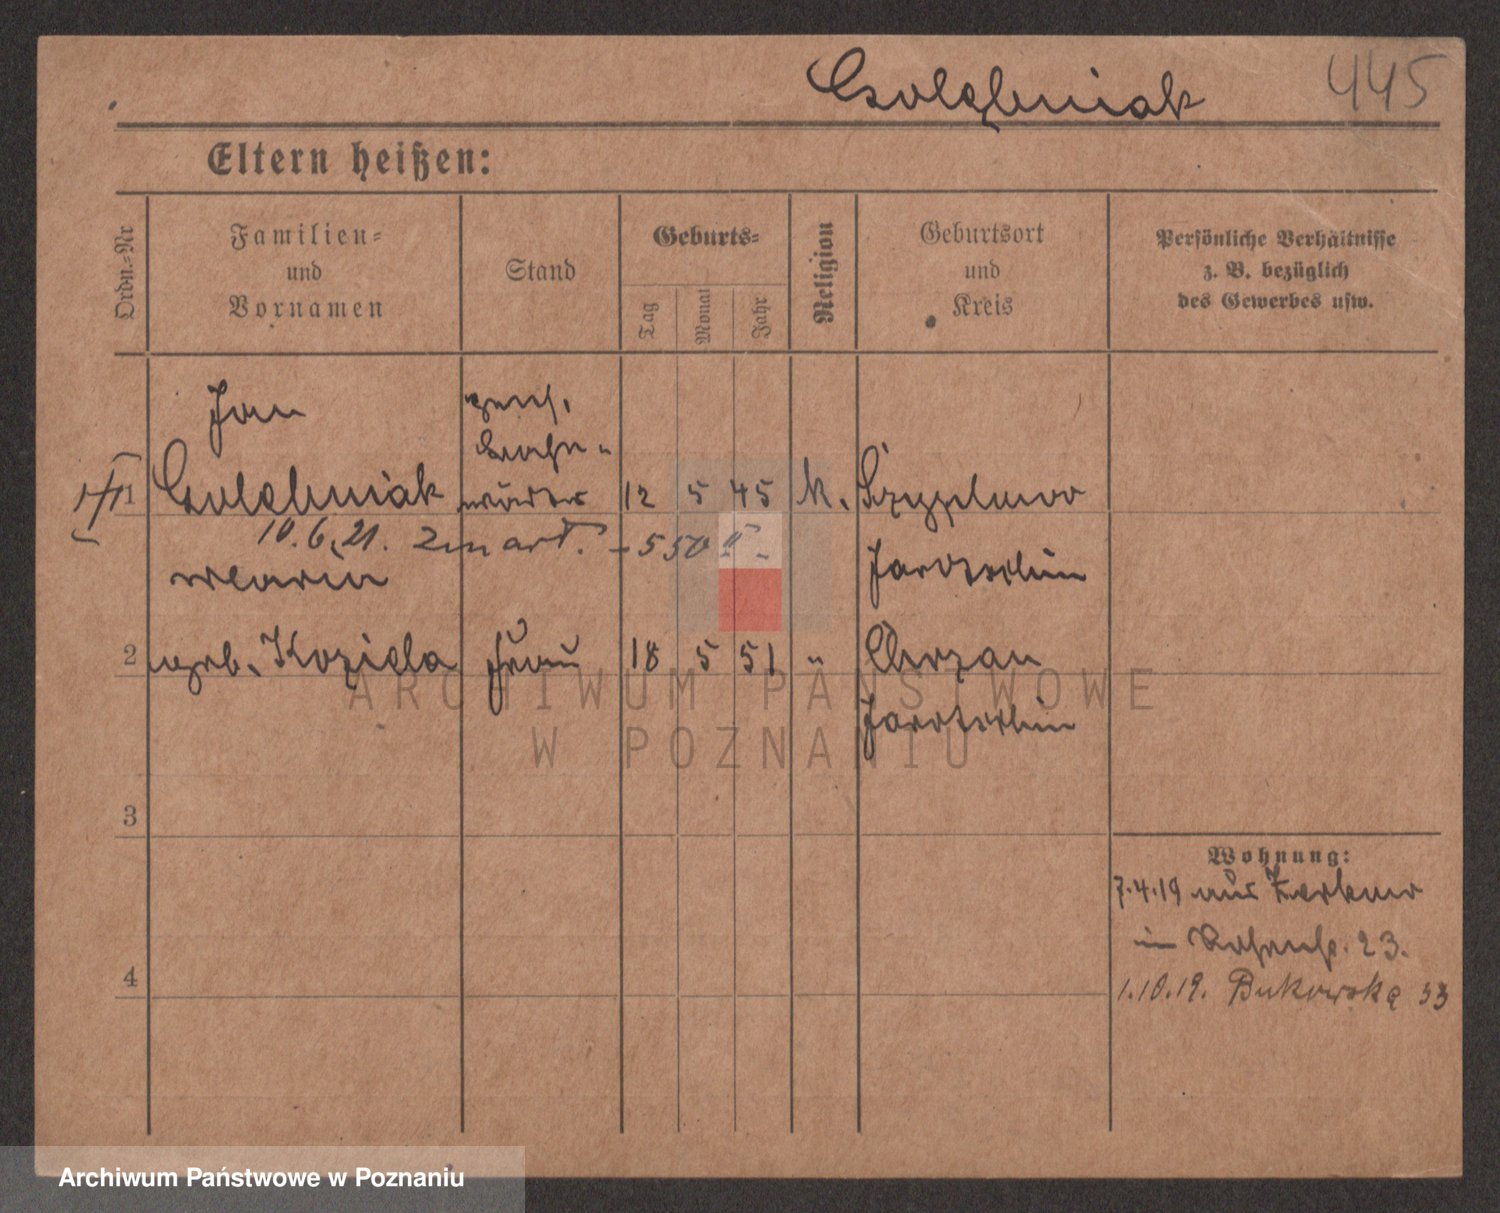 445
Eltern heißen:
Ordn.=Nr
Familien=
und
Vornamen
Stand
Geburts=
Tag
Monat
Jahr
Religion
Geburtsort
und
Kreis
Persönliche Verhältnisse
z. B. bezüglich
des Gewerbes usw.
Jan
pens.
Bahn-
wärter
1
12 5 45 k.
10.6.21. Zmarł. - 550 -
Jarotschin
Maria
2 geb. Koziela Frau 18 5 51 " Chrzan
Jarotschin
ARCHIWUM PAŃSTWOWE
W POZNANIU
3
Wohnung:
7.4.19 aus Zerkow
in 23.
4
1.10.19. Bukowska 33
Archiwum Państwowe w Poznaniu